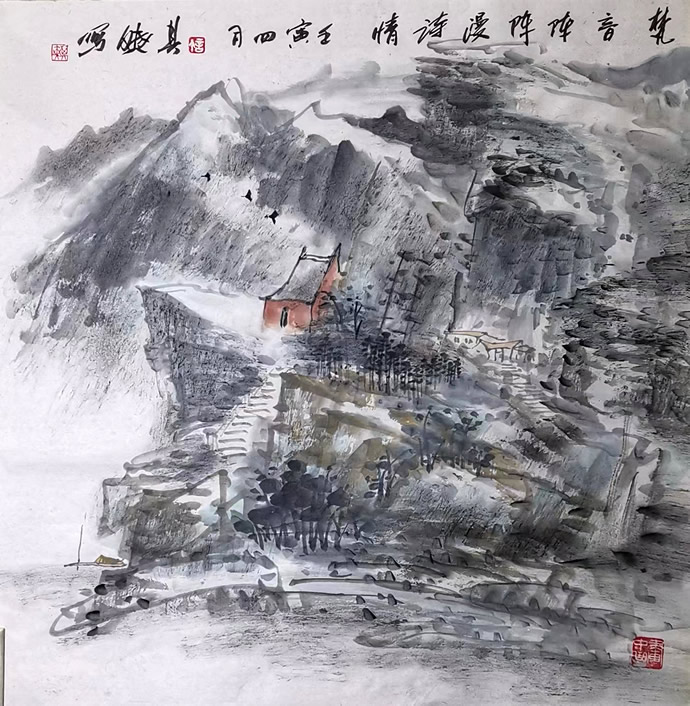 梵音阵阵漫诗情 壬寅四月 其写